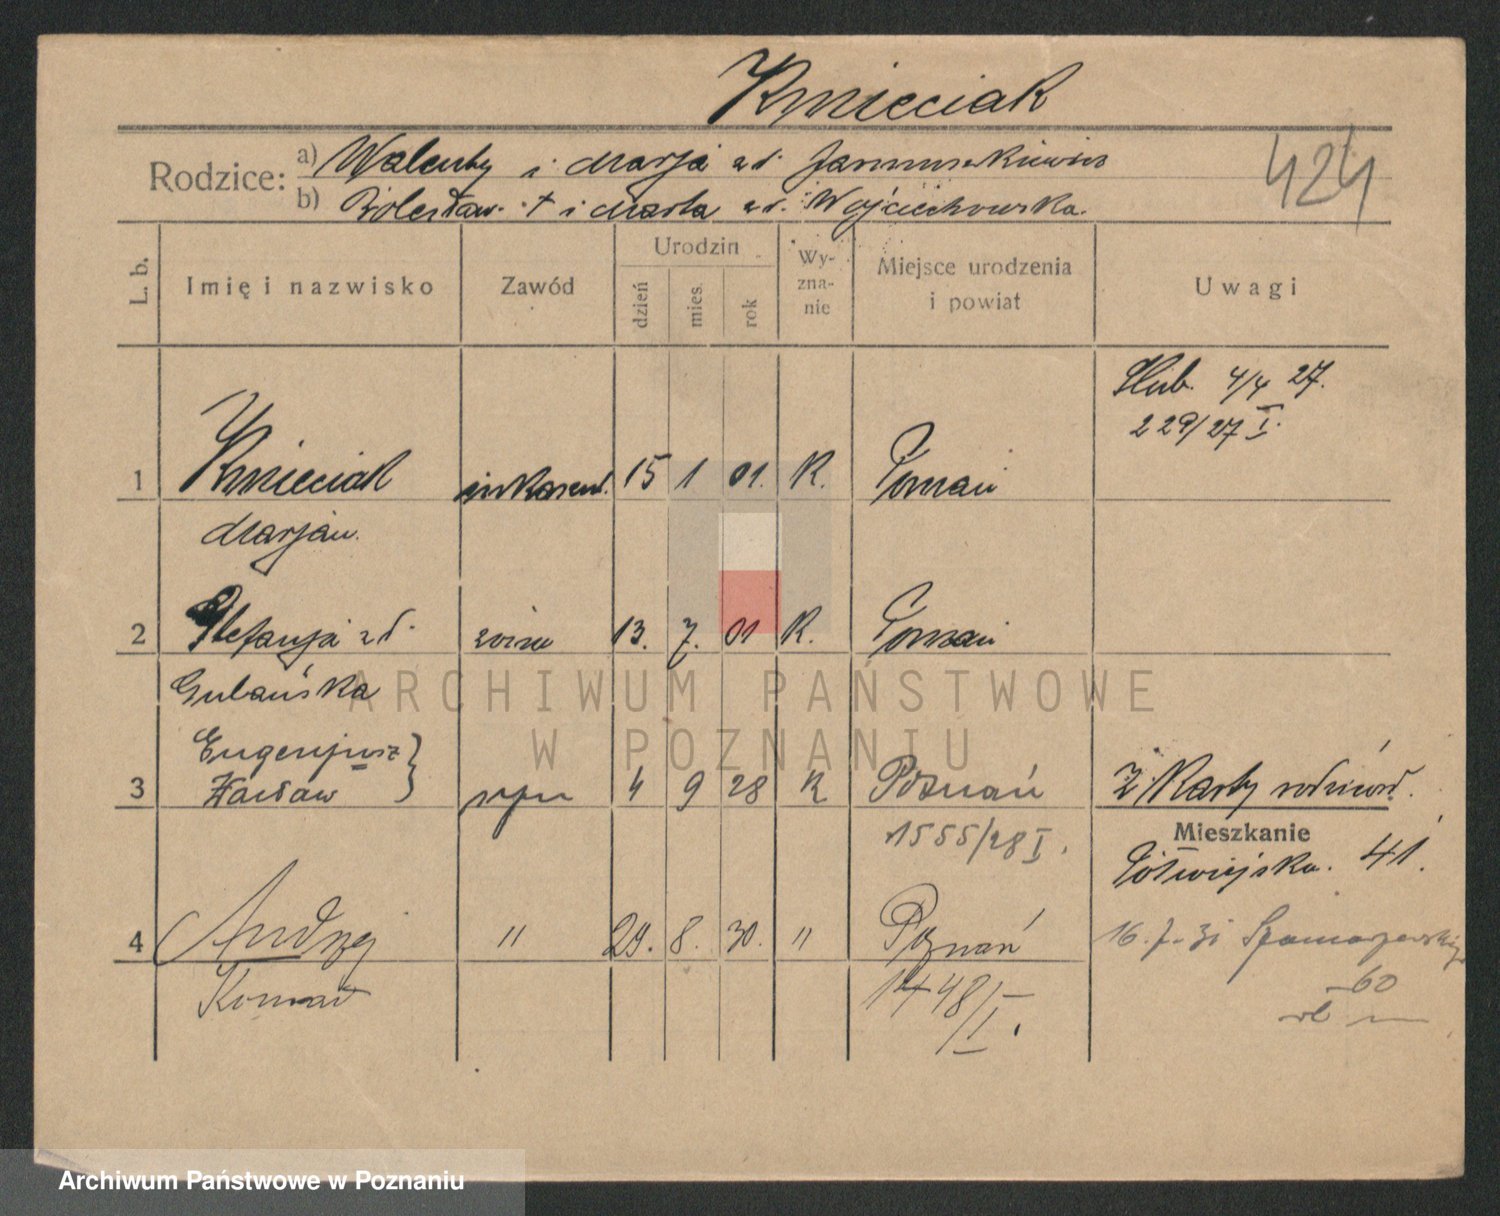 Kmieciak
424
Rodzice: a) Walenty i Marja zd. Januszkiewicz
b) Bolesław † i Marta zd. Wojciechowska.
L. b. Imię i nazwisko Zawód Urodzin dzień mies. rok Wyznanie Miejsce urodzenia i powiat Uwagi
Ślub. 4/4 27.
229/27 I.
1 Kmieciak inkasent. 15 1 01. K. Poznań
Marjan.
2 Stefanja zd. żona 13. 7. 01 K. Poznań
Gulańska
Eugenjusz
3 Wacław syn 4 9 28 K Poznań Z Karty rodziców.
1555/28 I.
Mieszkanie
Półwiejska. 41.
4 Andrzej " 29. 8. 30. " Poznań 16. 7. 31
Konrad 1448/I.
60
ARCHIWUM PAŃSTWOWE
W POZNANIU
Archiwum Państwowe w Poznaniu